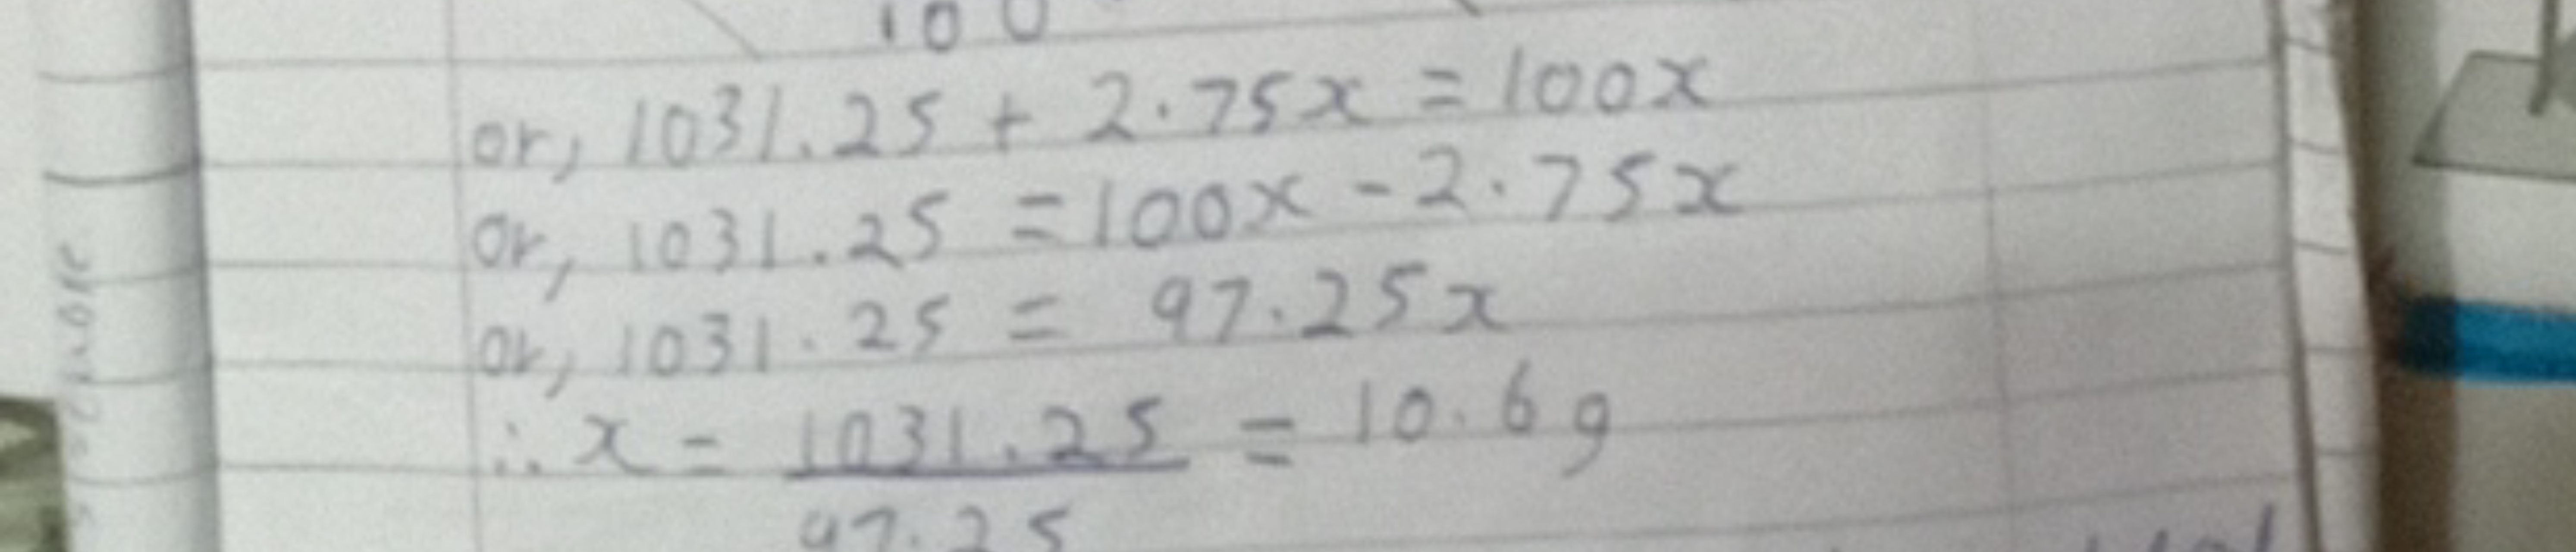 100
or, 1031.25 + 2.75x = 100x
or, 1031.25 = 100x - 2.75x
or, 1031.25 = 97.25x
∴ x = 1031.25 = 10.6g
97.25